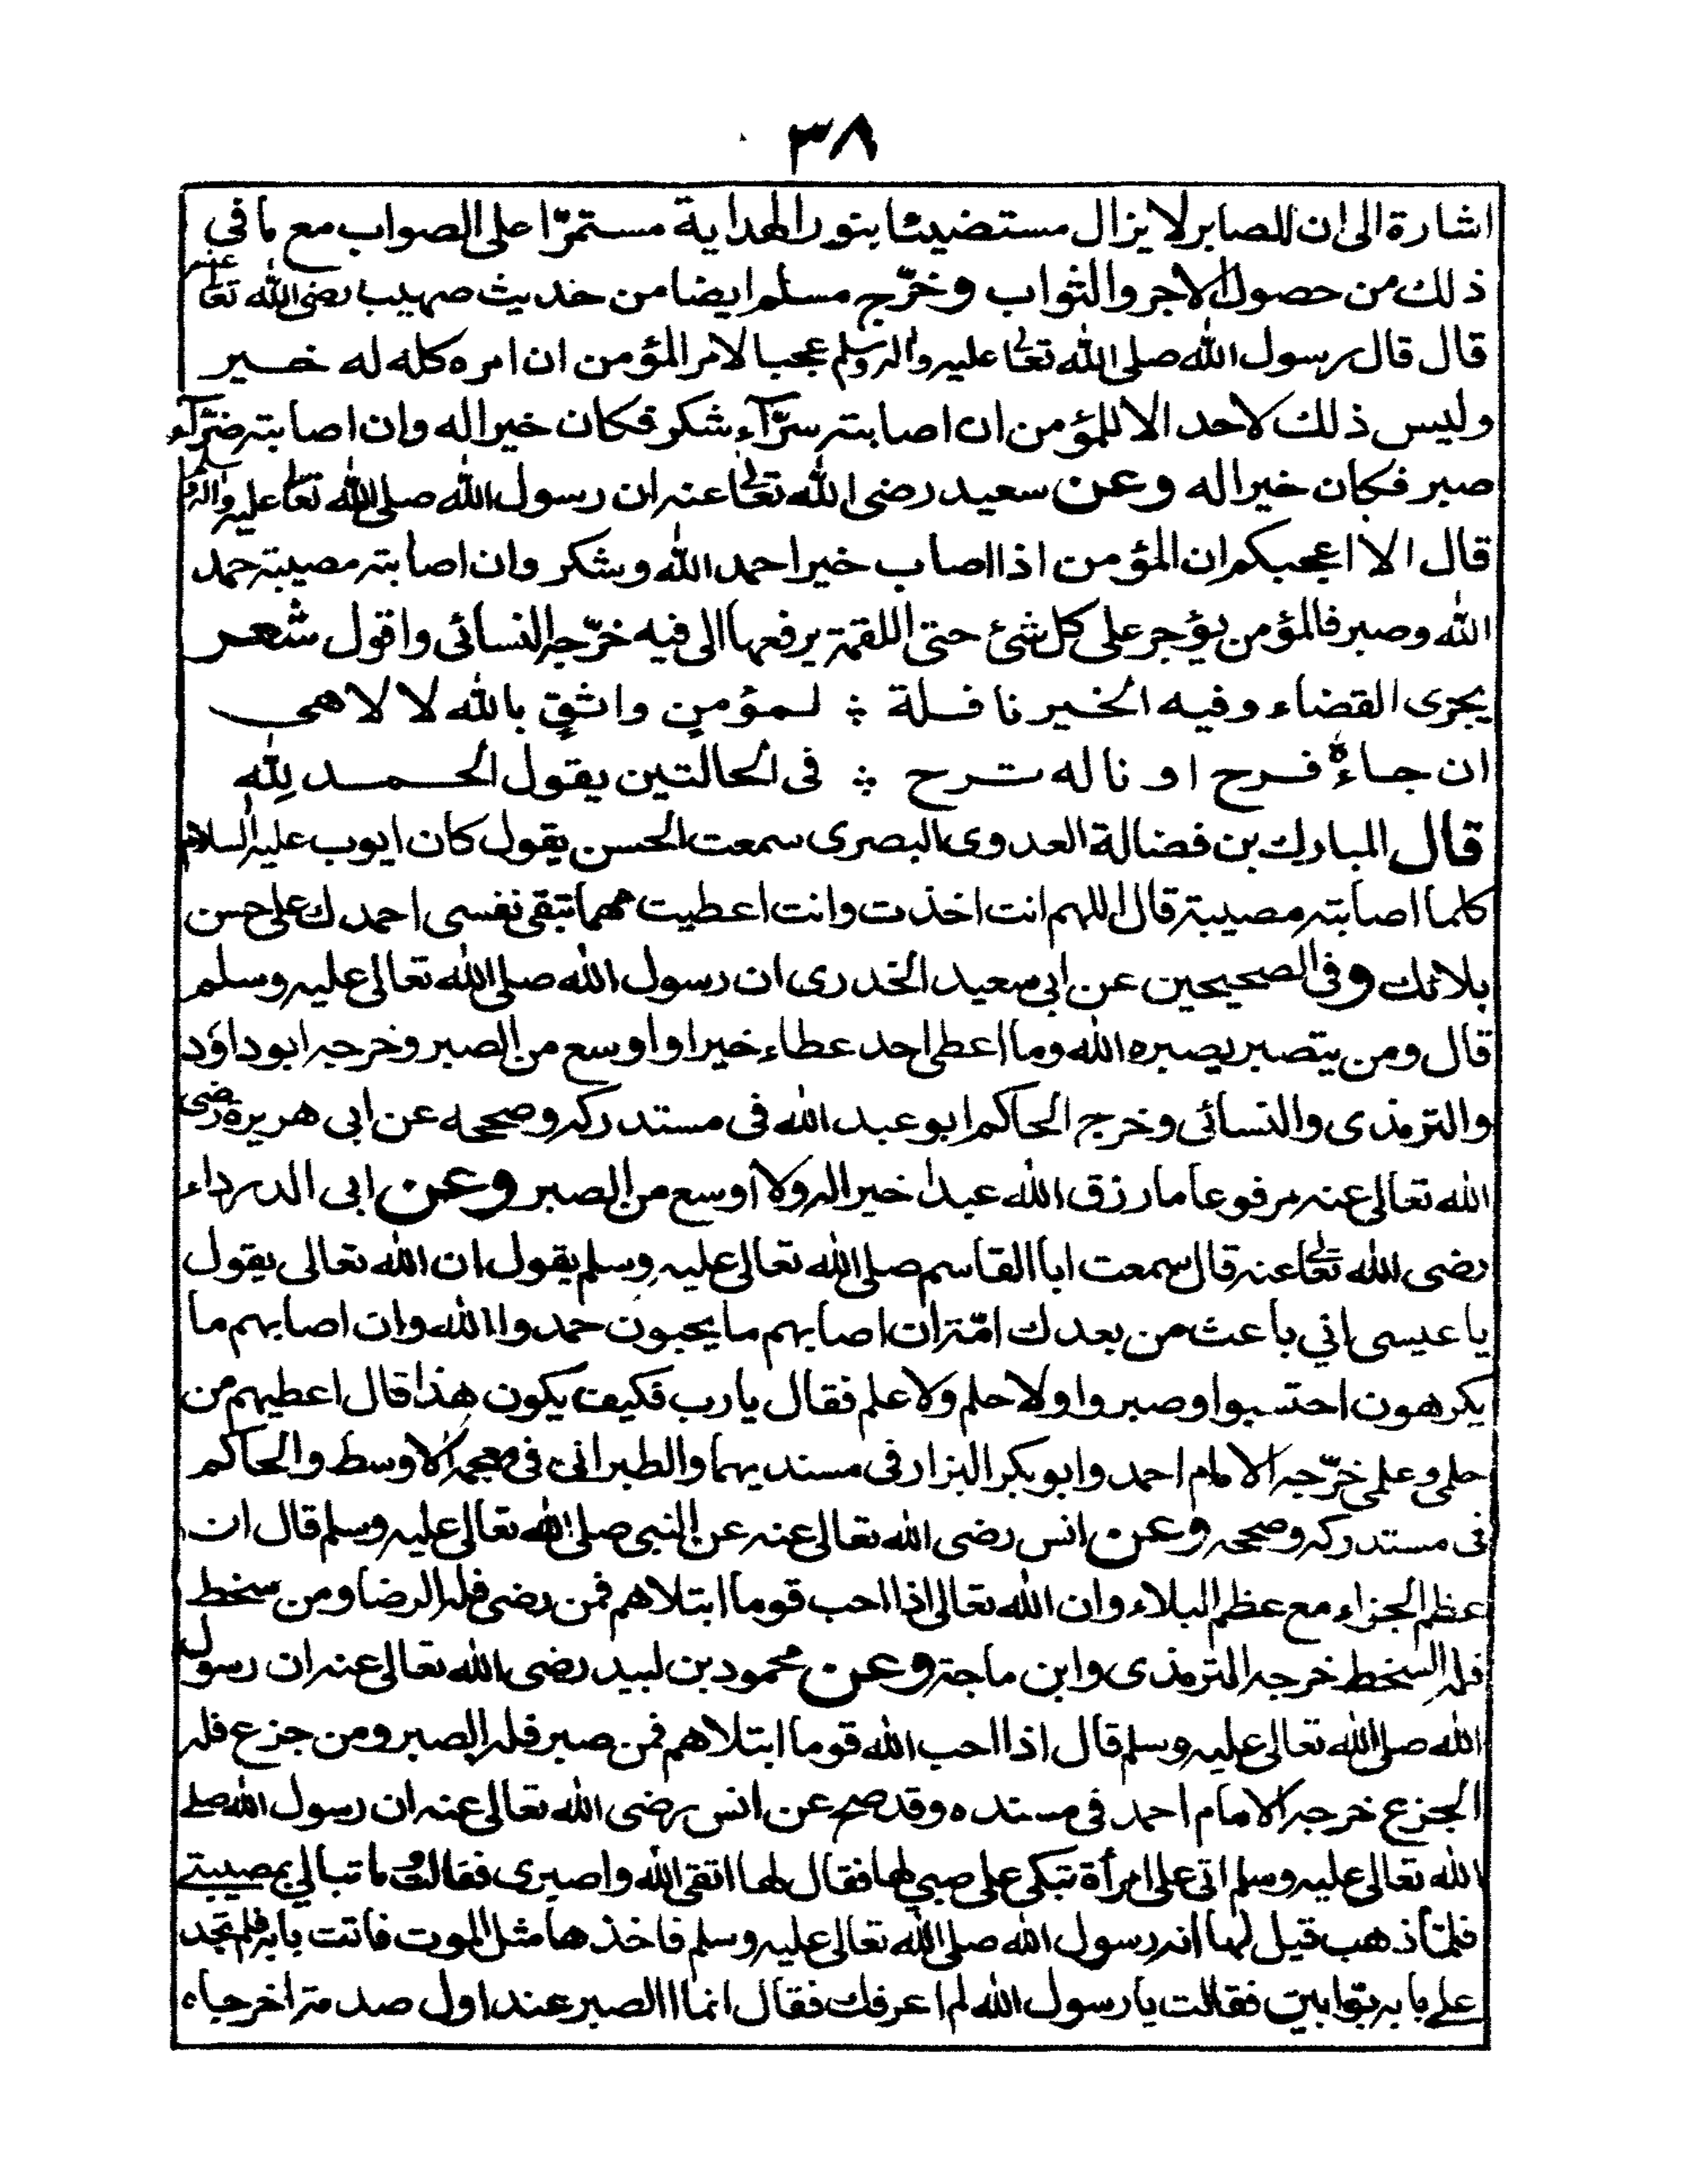 ٣٨
اشارة الى ان الصابر لا يزال مستضيئا بنور الهداية مستمرّا على الصواب مع ما في
ذلك من حصول الاجر والثواب وخرّج مسلم ايضا من حديث صهيب رضى الله تعالى عنه
قال قال رسول الله صلى الله تعالى عليه واله وسلم عجبا لامر المؤمن ان امره كله له خير
وليس ذلك لاحد الا للمؤمن ان اصابته سرّآء شكر فكان خيرا له وان اصابته ضرّآء
صبر فكان خيرا له وعن سعيد رضى الله تعالى عنه ان رسول الله صلى الله تعالى عليه واله وسلم
قال الا اعجبكم ان المؤمن اذا اصاب خيرا حمد الله وشكر وان اصابته مصيبة حمد
الله وصبر فالمؤمن يؤجر على كل شئ حتى اللقمة يرفعها الى فيه خرّجه النسائى واقول شعر
يجرى القضاء وفيه الخير نافلة ؛ لمؤمنٍ واثقٍ بالله لا لاهى
ان جاءهٗ فرح او ناله ترح ؛ فى الحالتين يقول الحمد لِلّٰه
قال المبارك بن فضالة العدوى البصرى سمعت الحسن يقول كان ايوب عليه السلام
كلما اصابته مصيبة قال اللهم انت اخذت وانت اعطيت مهما تبقى نفسى احمدك على حسن
بلائك وفى الصحيحين عن ابى سعيد الخدرى ان رسول الله صلى الله تعالى عليه وسلم
قال ومن يتصبر يصبره الله وما اعطى احد عطاء خيرا واوسع من الصبر وخرجه ابو داوٗد
والترمذى والنسائى وخرج الحاكم ابو عبد الله فى مستدركه وصححه عن ابى هريرة رضى
الله تعالى عنه مرفوعا ما رزق الله عبدا خيرا له ولا اوسع من الصبر وعن ابى الدرداء
رضى الله تعالى عنه قال سمعت ابا القاسم صلى الله تعالى عليه وسلم يقول ان الله تعالى يقول
يا عيسى اني باعث من بعدك امّة ان اصابهم ما يحبون حمدوا الله وان اصابهم ما
يكرهون احتسبوا وصبروا ولا حلم ولا علم فقال يا رب فكيف يكون هذا قال اعطيهم من
حلمي وعلمي خرّجه الامام احمد وابو بكر البزار فى مسنديهما والطبرانى فى معجمه الاوسط والحاكم
فى مستدركه وصححه وعن انس رضى الله تعالى عنه عن النبى صلى الله تعالى عليه وسلم قال ان
عظم الجزاء مع عظم البلاء وان الله تعالى اذا احب قوما ابتلاهم فمن رضى فله الرضا ومن سخط
فله السخط خرجه الترمذى وابن ماجة وعن محمود بن لبيد رضى الله تعالى عنه ان رسول
الله صلى الله تعالى عليه وسلم قال اذا احب الله قوما ابتلاهم فمن صبر فله الصبر ومن جزع فله
الجزع خرجه الامام احمد فى مسنده وقد صح عن انس رضى الله تعالى عنه ان رسول الله صلے
الله تعالى عليه وسلم اتى على امرأة تبكى على صبي لها فقال لها اتقى الله واصبرى فقالت وما تبالي بمصيبتے
فلمّا ذهب قيل لها انه رسول الله صلى الله تعالى عليه وسلم فاخذها مثل الموت فاتت بابه فلم تجد
علے بابه بوّابين فقالت يا رسول الله لم اعرفك فقال انما الصبر عند اول صدمة اخرجاه